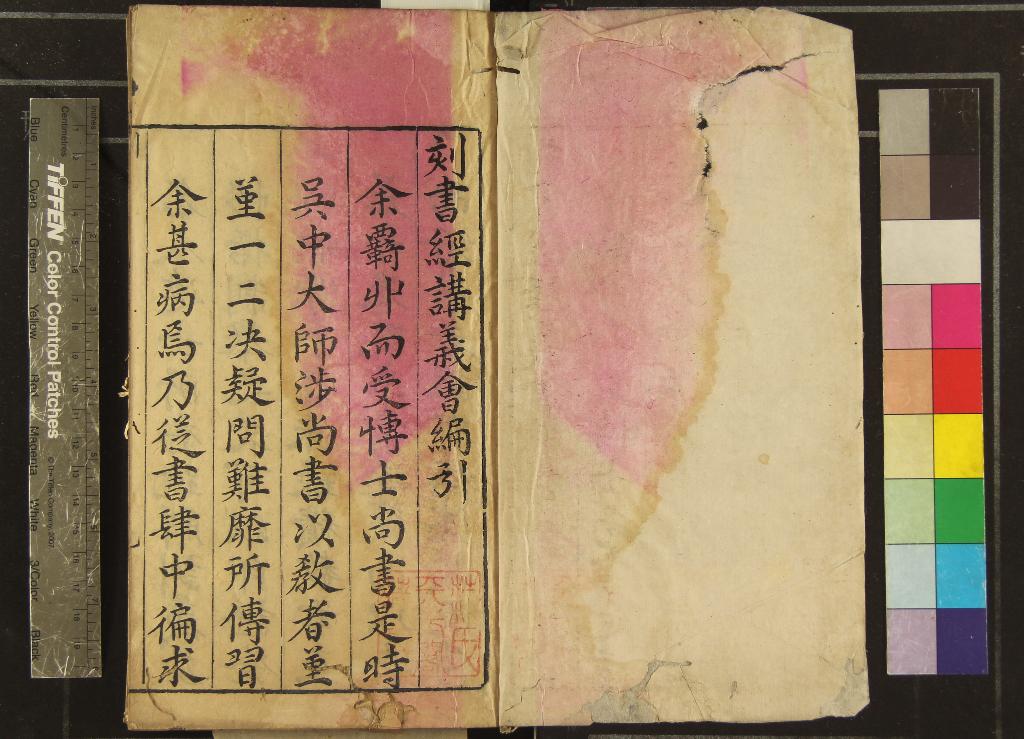 刻書經講義會編引
余覊丱而受博士尚書是時
吳中大師涉尚書以教者堇
堇一二决疑問難靡所傳習
余甚病焉乃從書肆中徧求
Inches
Centimetres
TIFFEN Color Control Patches
© The Tiffen Company, 2007
Blue
Cyan
Green
Yellow
Red
Magenta
White
3/Color
Black